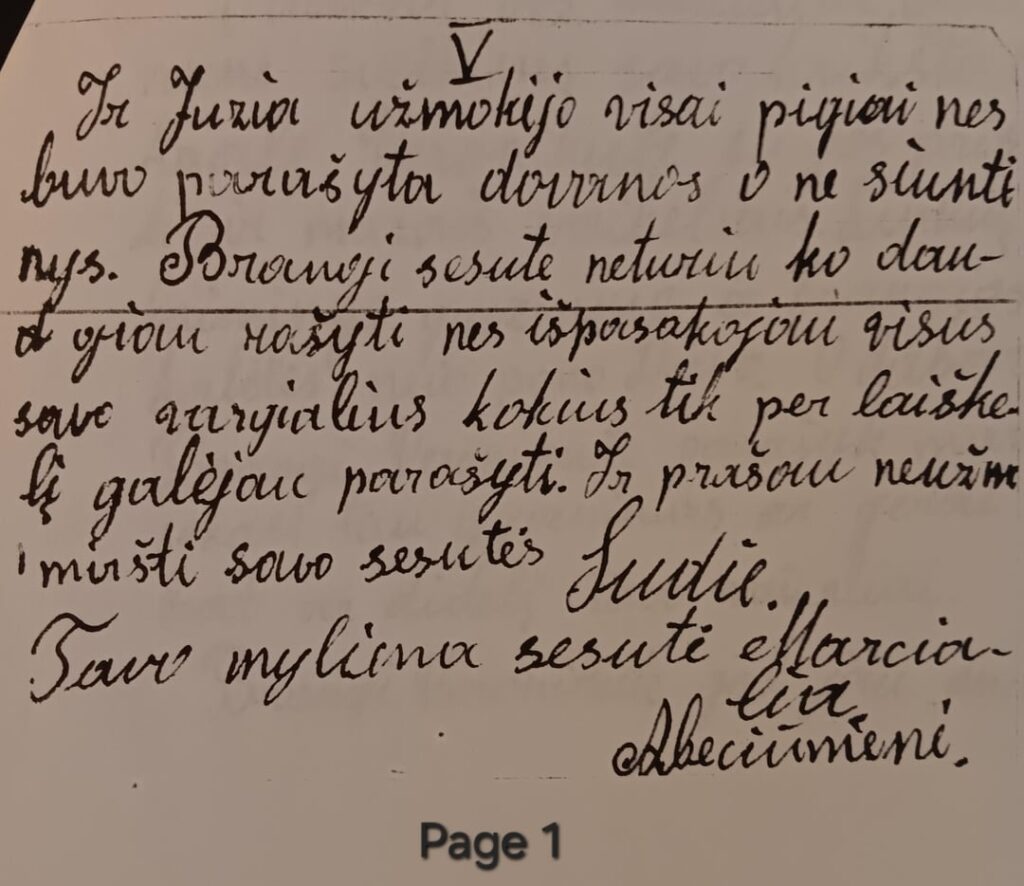 V
Ir Juzia užmokijo visai pigiai nes
buvo parašyta dovanos o ne siunti
nys. Brangi sesute neturiu ko dau-
giau rašyti nes išpasakojau visus
savo vargialius kokius tik per laiške-
lį galėjau parašyti. Ir prašau neužm
miršti savo sesutės Sudie.
Tavo mylima sesutė Marcia-
lia
Abeciūnienė.
Page 1